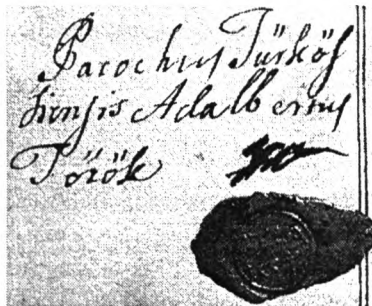 Parochus Türkös
diensis Adalbertus
Török